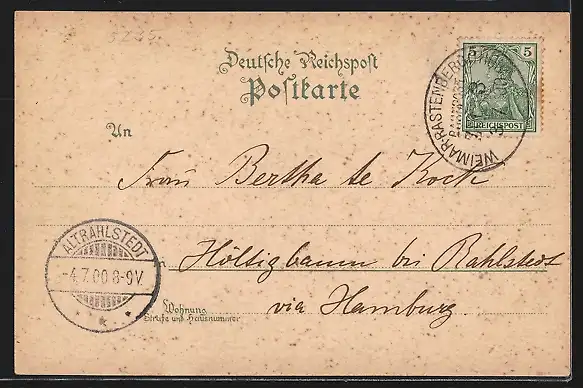 Deutsche Reichspost
Postkarte
5 5
REICHSPOST
WEIMAR RASTENBERG
BAHNPOST
An
Frau Bertha te Kock
ALTRAHLSTEDT
-4.7.00 8-9V
Höltigbaum bei Rahlstedt
via Hamburg
Wohnung
Strasse und Hausnummer